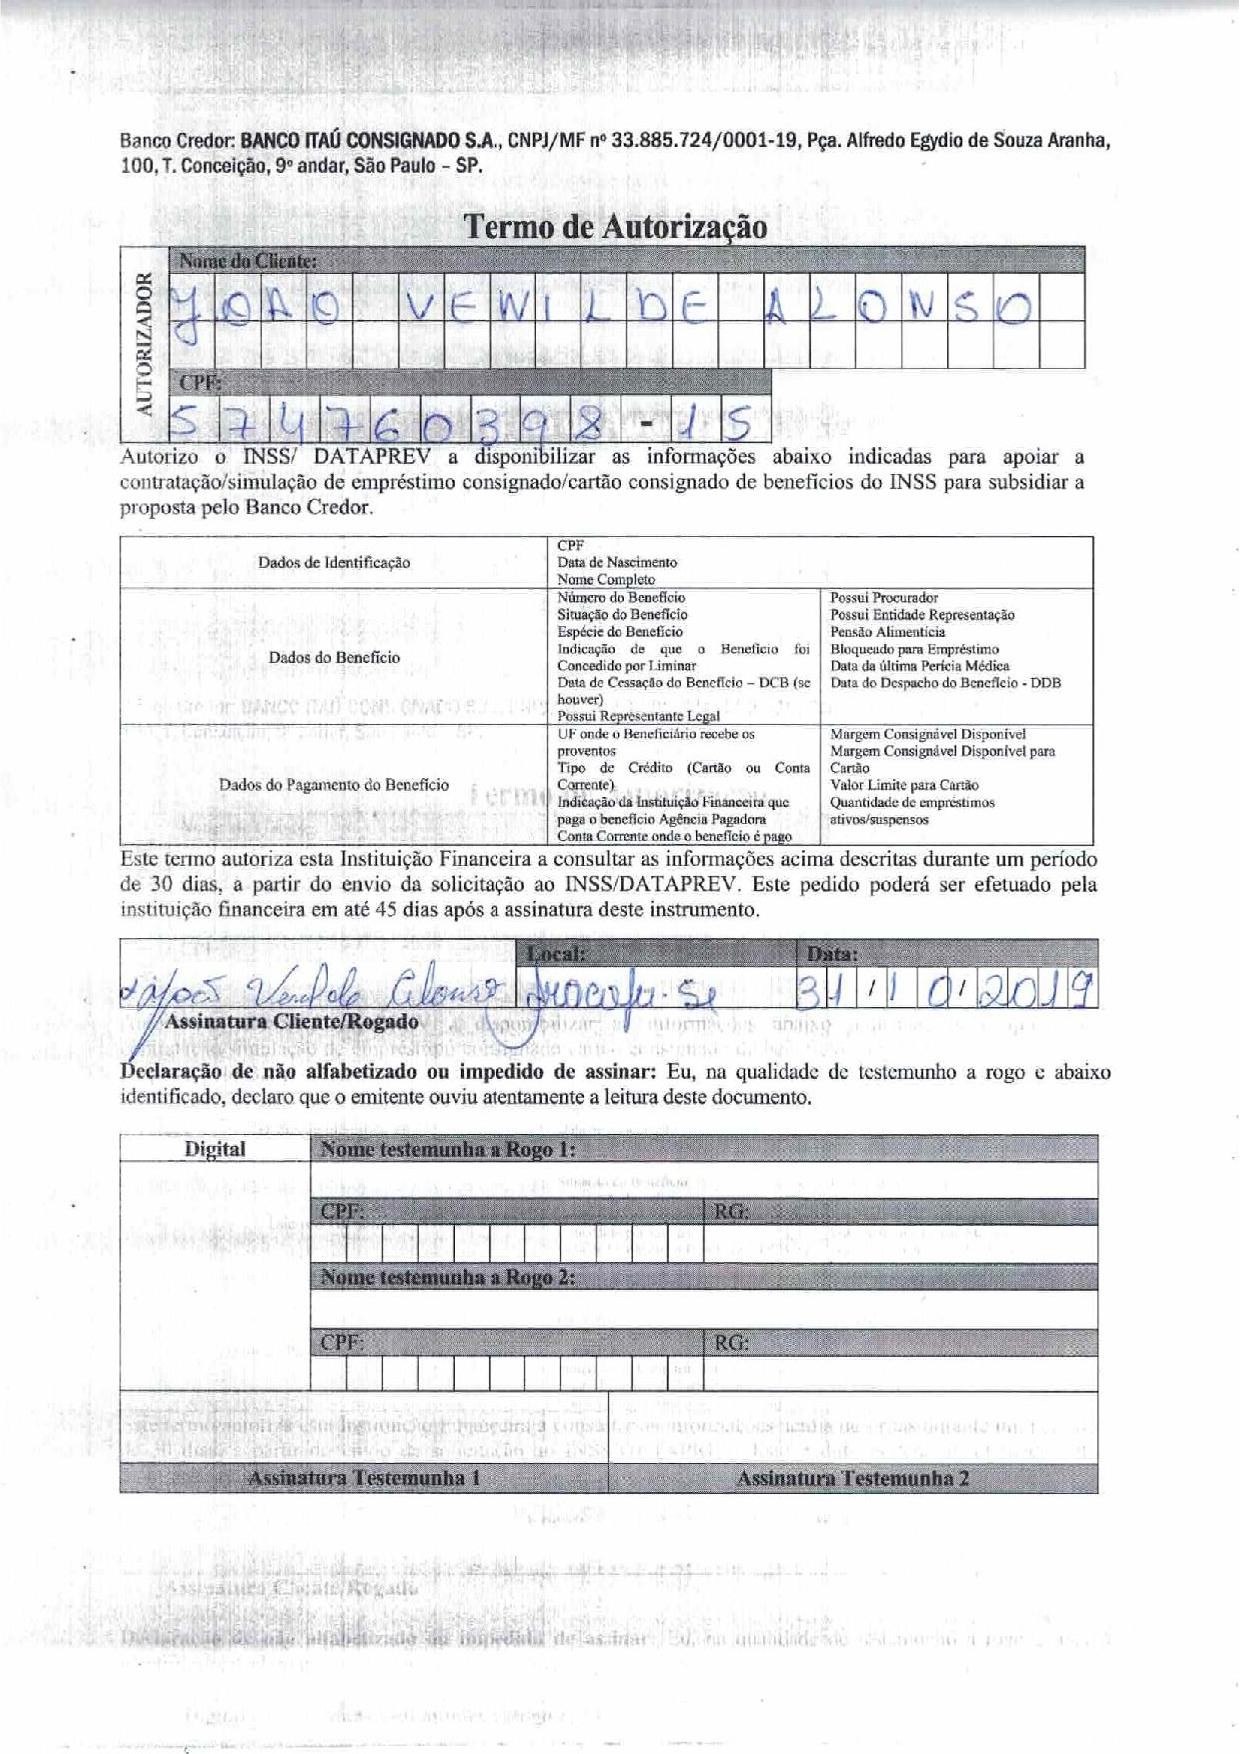 Banco Credor: BANCO ITAÚ CONSIGNADO S.A., CNPJ/MF nº 33.885.724/0001-19, Pça. Alfredo Egydio de Souza Aranha,
100, T. Conceição, 9º andar, São Paulo – SP.
Termo de Autorização
AUTORIZADOR
Nome do Cliente:
JOAO VENILDE ALONSO
CPF:
574760398-15
Autorizo o INSS/ DATAPREV a disponibilizar as informações abaixo indicadas para apoiar a
contratação/simulação de empréstimo consignado/cartão consignado de benefícios do INSS para subsidiar a
proposta pelo Banco Credor.
Dados de Identificação
CPF
Data de Nascimento
Nome Completo
Dados do Benefício
Número do Benefício
Situação do Benefício
Espécie do Benefício
Indicação de que o Benefício foi
Concedido por Liminar
Data de Cessação do Benefício – DCB (se
houver)
Possui Representante Legal
Possui Procurador
Possui Entidade Representação
Pensão Alimentícia
Bloqueado para Empréstimo
Data da última Perícia Médica
Data do Despacho do Benefício - DDB
Dados do Pagamento do Benefício
UF onde o Beneficiário recebe os
proventos
Tipo de Crédito (Cartão ou Conta
Corrente)
Indicação da Instituição Financeira que
paga o benefício Agência Pagadora
Conta Corrente onde o benefício é pago
Margem Consignável Disponível
Margem Consignável Disponível para
Cartão
Valor Limite para Cartão
Quantidade de empréstimos
ativos/suspensos
Este termo autoriza esta Instituição Financeira a consultar as informações acima descritas durante um período
de 30 dias, a partir do envio da solicitação ao INSS/DATAPREV. Este pedido poderá ser efetuado pela
instituição financeira em até 45 dias após a assinatura deste instrumento.
Local: Data:
Alonso Se 31/10/2019
Assinatura Cliente/Rogado
Declaração de não alfabetizado ou impedido de assinar: Eu, na qualidade de testemunho a rogo e abaixo
identificado, declaro que o emitente ouviu atentamente a leitura deste documento.
Digital
Nome testemunha a Rogo 1:
CPF: RG:
Nome testemunha a Rogo 2:
CPF: RG:
Assinatura Testemunha 1 Assinatura Testemunha 2